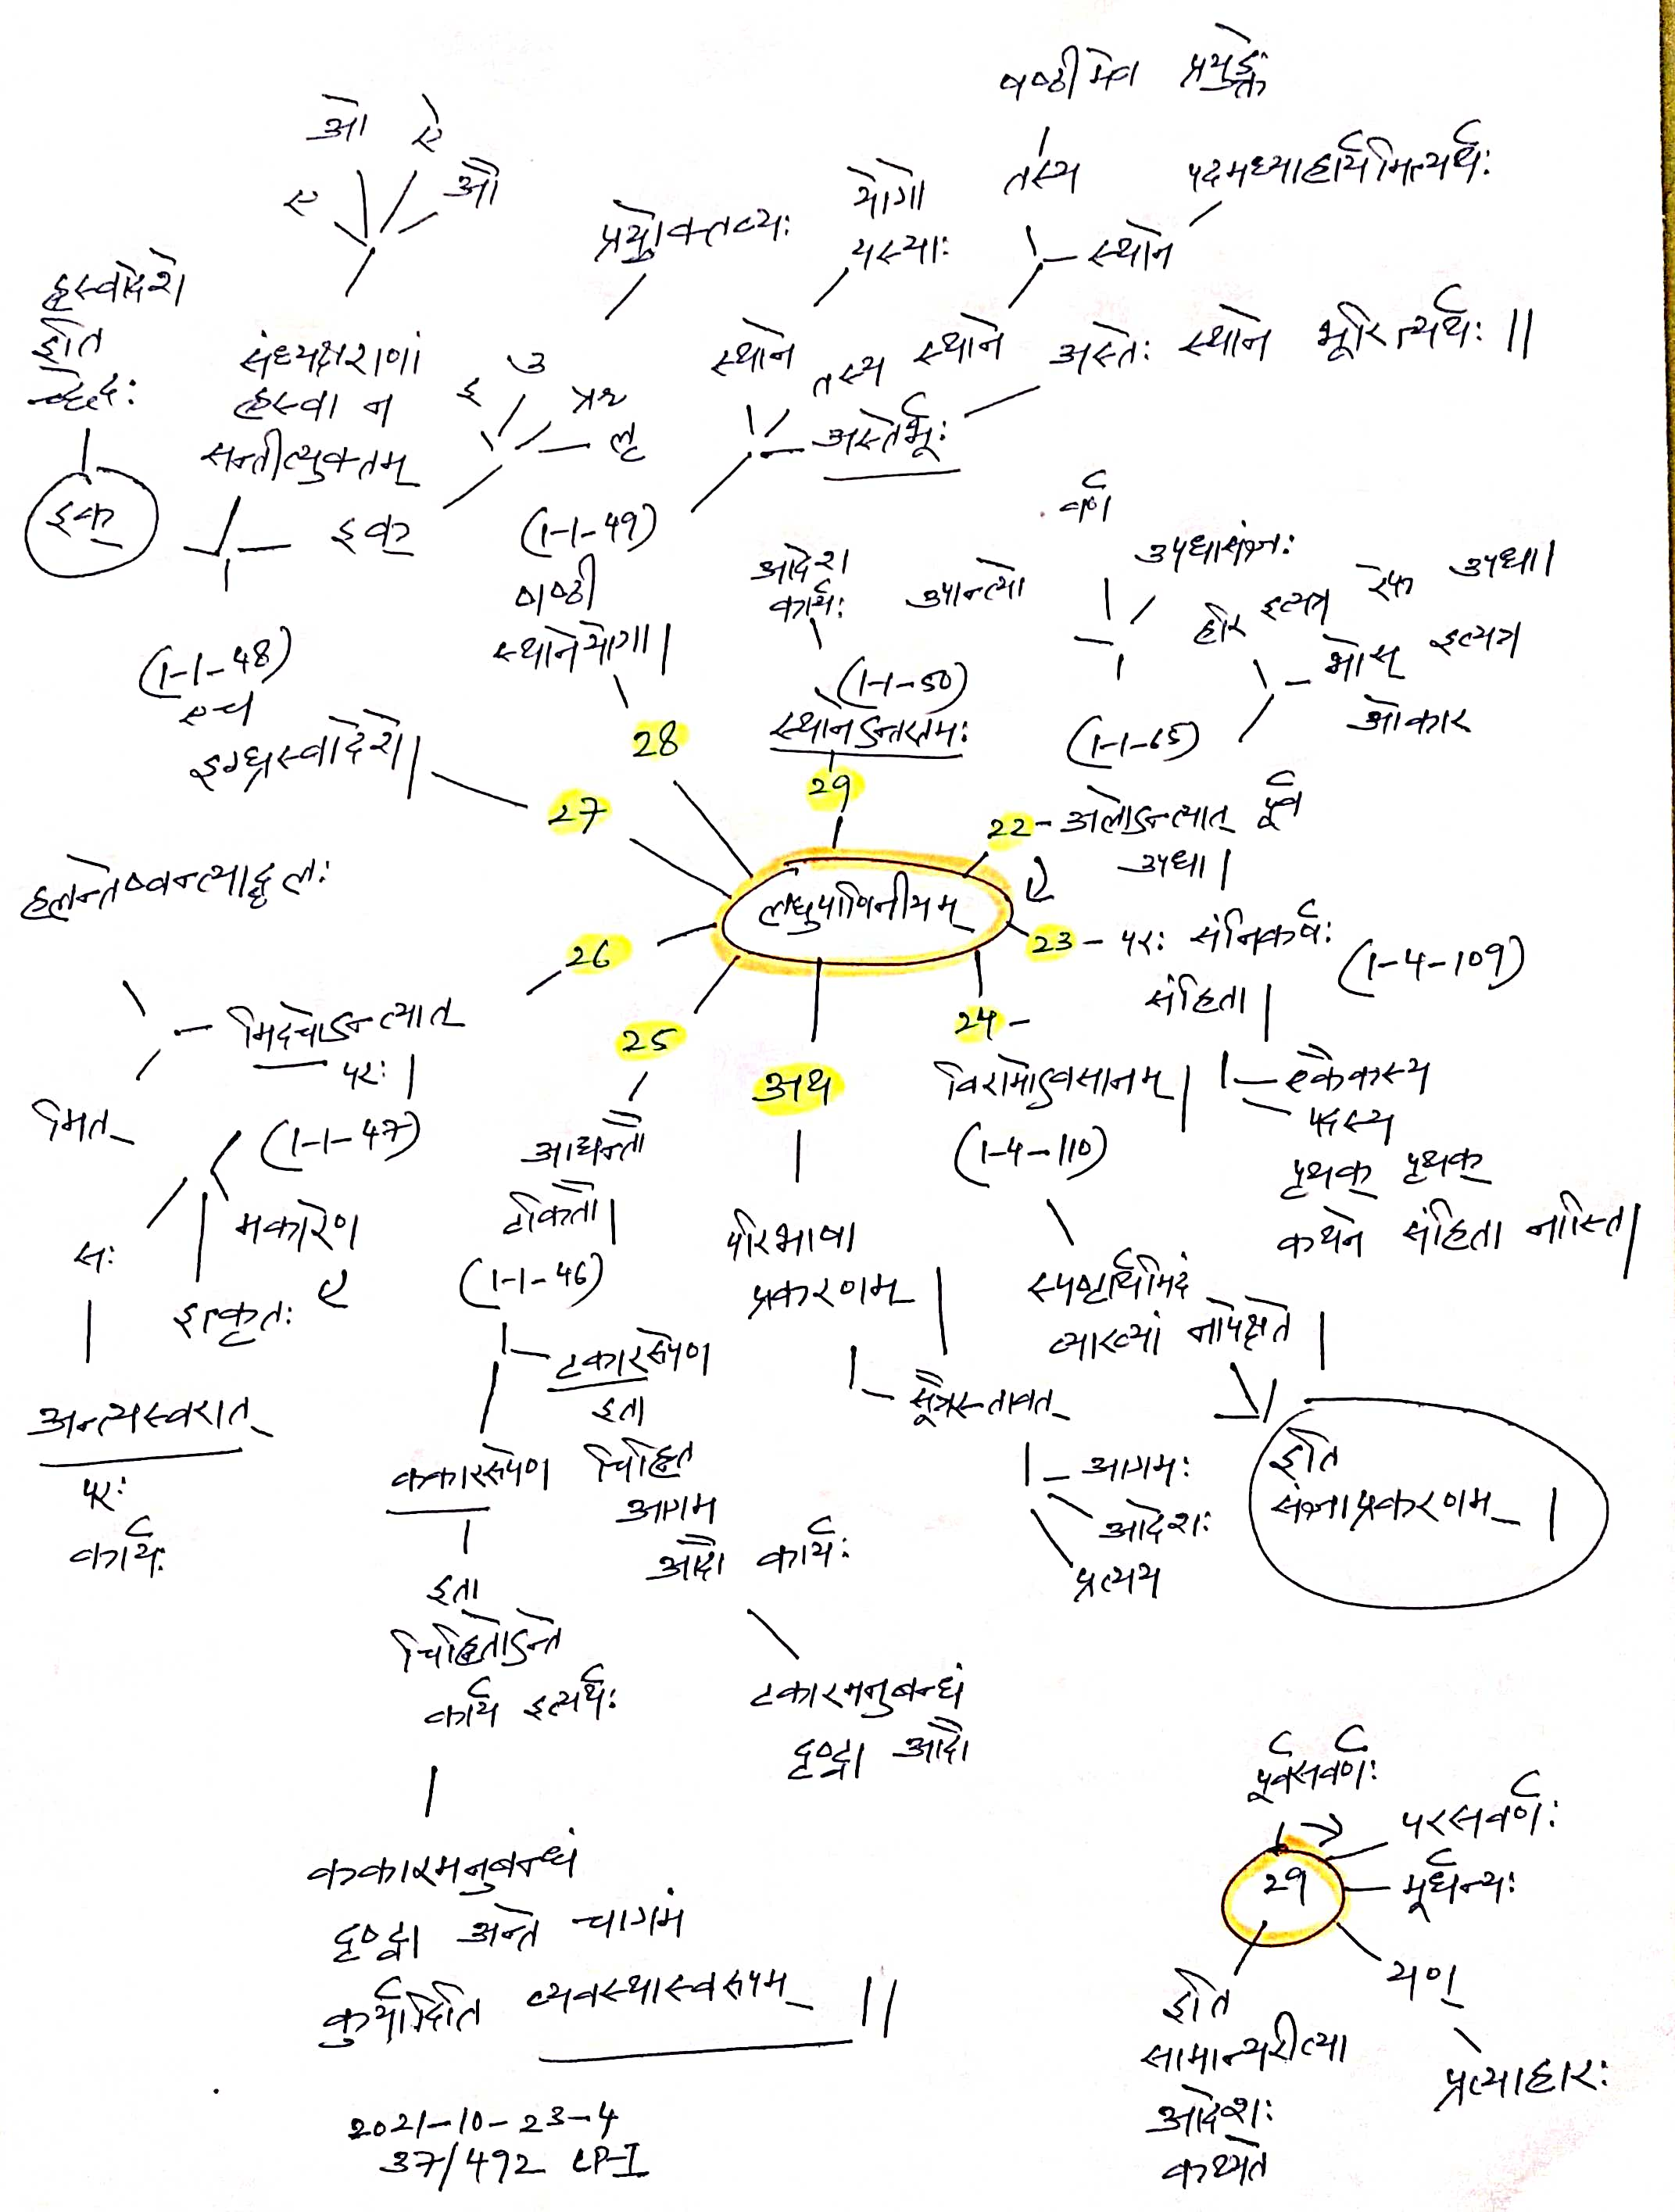 षष्ठीमेव प्रयुङ्क्ते
ओ ऐ
ए औ
तस्य
पदमध्याहार्यमित्यर्थः
स्थाने
योगो
यस्याः
प्रयोक्तव्यः
ह्रस्वादेशे
इति
च्छेदः
इक्
संध्यक्षराणां
ह्रस्वा न
सन्तीत्युक्तम्
इ उ
ऋ
लृ
इक्
स्थाने
तस्य स्थाने
अस्तेः स्थाने भूरित्यर्थः ||
अस्तेर्भूः
(1-1-49)
षष्ठी
स्थानेयोगा|
28
(1-1-48)
एच
इग्घ्रस्वादेशे|
27
आदेश
कार्यः
(1-1-50)
स्थानेऽन्तरतमः
29
वर्ण
उपान्त्यो
उपधासंज्ञः
इत्यत्र रेफ उपधा|
भोस् इत्यत्र
ओकार
(1-1-65)
22 - अलोऽन्त्यात् पूर्व
उपधा|
लघुपाणिनीयम्
23 - परः संनिकर्षः
संहिता|
(1-4-109)
एकैकस्य
पदस्य
पृथक् पृथक्
कथने संहिता नास्ति|
24 -
विरामोऽवसानम्|
(1-4-110)
स्पष्टार्थमिदं
व्याख्यां नापेक्षते|
इति
संज्ञाप्रकरणम् |
अथ
परिभाषा
प्रकरणम्|
सूत्रस्तावत्
आगमः
आदेशः
प्रत्यय
25
आद्यन्तौ
टकितौ|
(1-1-46)
टकाररूपेण
इता
चिह्नित
आगम
आदौ कार्यः
टकारमनुबन्धं
दृष्ट्वा आदौ
ककाररूपेण
इता
चिह्नितोऽन्ते
कार्य इत्यर्थः
ककारमनुबन्धं
दृष्ट्वा अन्ते चागमं
कुर्यादिति व्यवस्थास्वरूपम् ||
26
हलन्तेष्वन्त्याद्धलः
मिदचोऽन्त्यात्
परः|
(1-1-47)
मित्
मकारेण
इत्कृतः
सः
अन्त्यस्वरात्
परः
कार्यः
पूर्वसवर्णः
परसवर्णः
29
मूर्धन्यः
यण्
प्रत्याहारः
इति
सामान्यरीत्या
आदेशः
कथ्यते
2021-10-23-4
37/492 LP-I